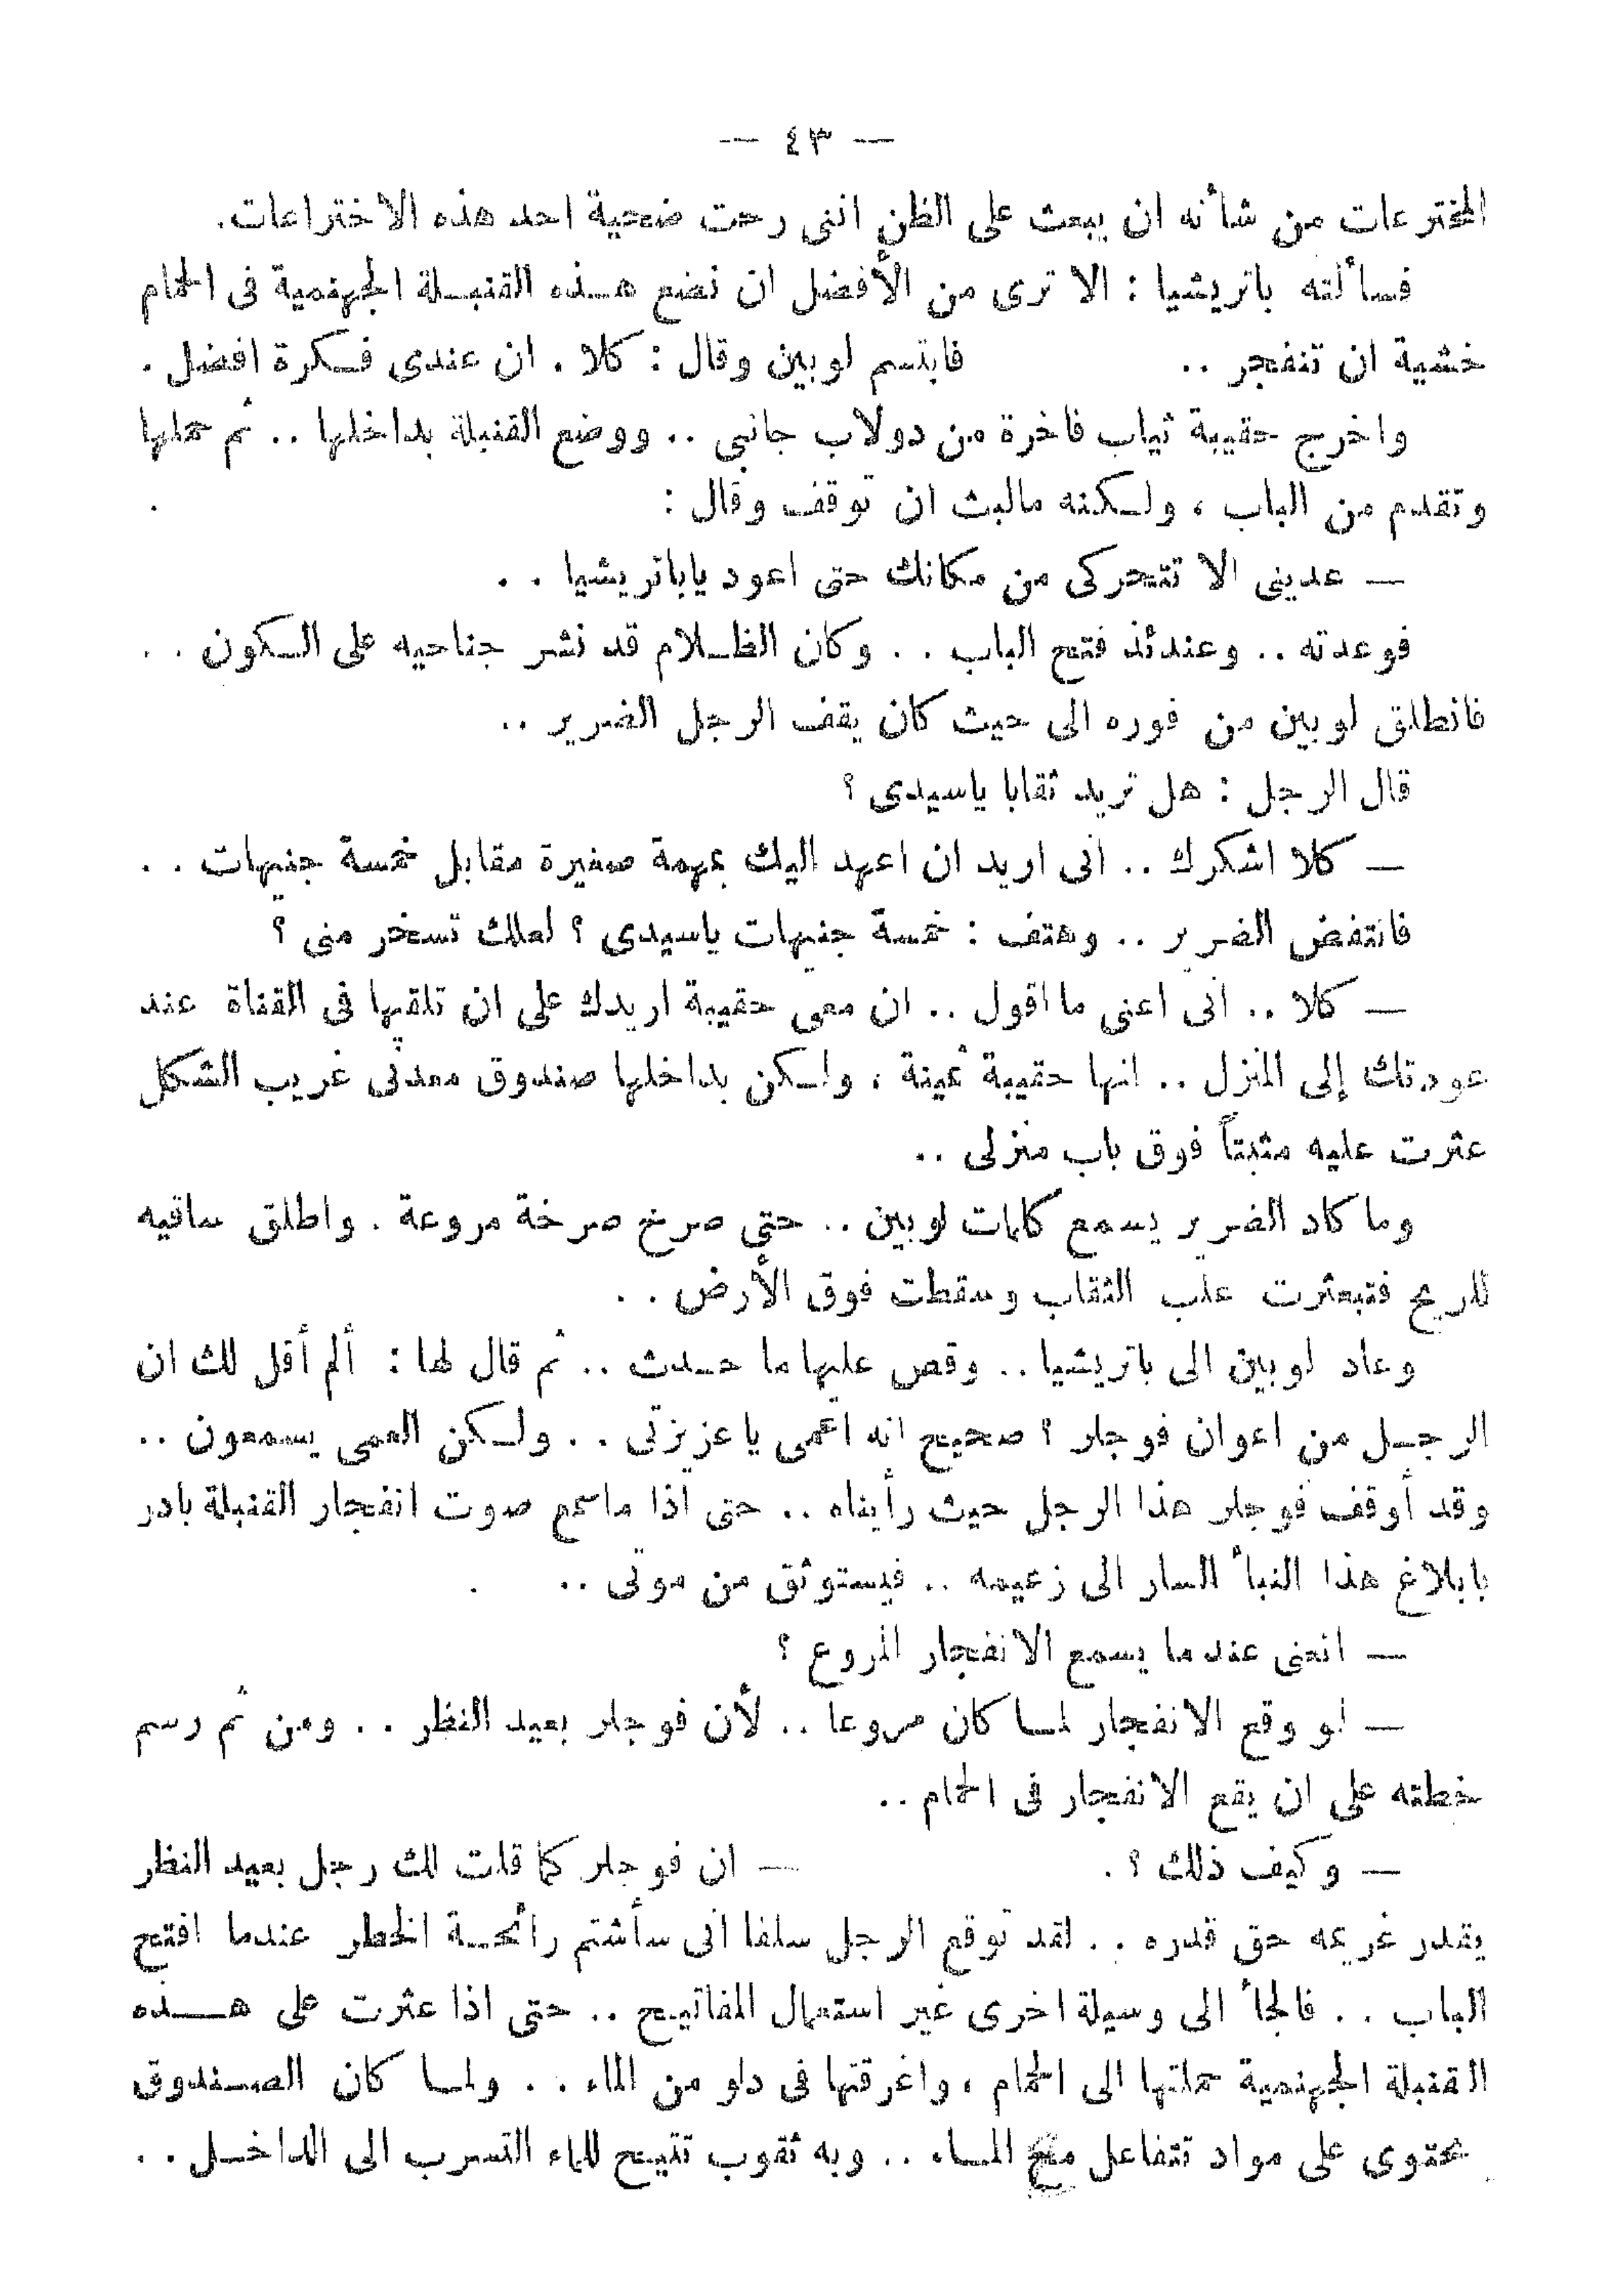 — ٤٣ —
المخترعات من شأنه ان يبعث على الظن اننى رحت ضحية احد هذه الاختراعات.
فسألته باتريشيا : الا ترى من الأفضل ان نضع هـذه القنبـلة الجهنمية فى الحمام
خشية ان تنفجر .. فابتسم لوبين وقال : كلا . ان عندى فـكرة افضل .
واخرج حقيبة ثياب فاخرة من دولاب جانبى .. ووضع القنبلة بداخلها .. ثم حملها
وتقدم من الباب ، ولـكنه مالبث ان توقف وقال :
— عدينى الا تتحركى من مكانك حتى اعود ياباتريشيا . .
فوعدته .. وعندئذ فتح الباب . . وكان الظـلام قد نشر جناحيه على الـكون . .
فانطلق لوبين من فوره الى حيث كان يقف الرجل الضرير ..
قال الرجل : هل تريد ثقابا ياسيدى ؟
— كلا اشكرك .. انى اريد ان اعهد اليك بمهمة صغيرة مقابل خمسة جنيهات . .
فانتفض الضرير .. وهتف : خمسة جنيهات ياسيدى ؟ لعلك تسخر منى ؟
— كلا .. انى اعنى ما اقول .. ان معى حقيبة اريدك على ان تلقيها فى القناة عند
عودتك إلى المنزل .. انها حقيبة ثمينة ، ولـكن بداخلها صندوق معدنى غريب الشكل
عثرت عليه مثبتاً فوق باب منزلى ..
وما كاد الضرير يسمع كلمات لوبين .. حتى صرخ صرخة مروعة . واطلق ساقيه
للريح فتبعثرت علب الثقاب وسقطت فوق الأرض . .
وعاد لوبين الى باتريشيا .. وقص عليها ما حـدث .. ثم قال لها : ألم أقل لك ان
الرجـل من اعوان فوجلر ؟ صحيح انه اعمى يا عزيزتى . . ولـكن العمى يسمعون ..
وقد أوقف فوجلر هذا الرجل حيث رأيناه .. حتى اذا ماسمع صوت انفجار القنبلة بادر
بابلاغ هذا النبأ السار الى زعيمه .. فيستوثق من موتى ..
— اتعنى عندما يسمع الانفجار المروع ؟
— لو وقع الانفجار لمـا كان مروعا .. لأن فوجلر بعيد النظر . . ومن ثم رسم
خطته على ان يقع الانفجار فى الحمام ..
— وكيف ذلك ؟ . — ان فوجلر كما قلت لك رجل بعيد النظر
يقدر غريمه حق قدره . . لقد توقع الرجل سلفا انى سأشتم رائحـة الخطر عندما افتح
الباب . . فالجأ الى وسيلة اخرى غير استعمال المفاتيح .. حتى اذا عثرت على هـــذه
القنبلة الجهنمية حملتها الى الحمام ، واغرقتها فى دلو من الماء . . ولمـا كان الصـندوق
يحتوى على مواد تتفاعل مع المـاء .. وبه ثقوب تتيح للماء التسرب الى الداخـل . .